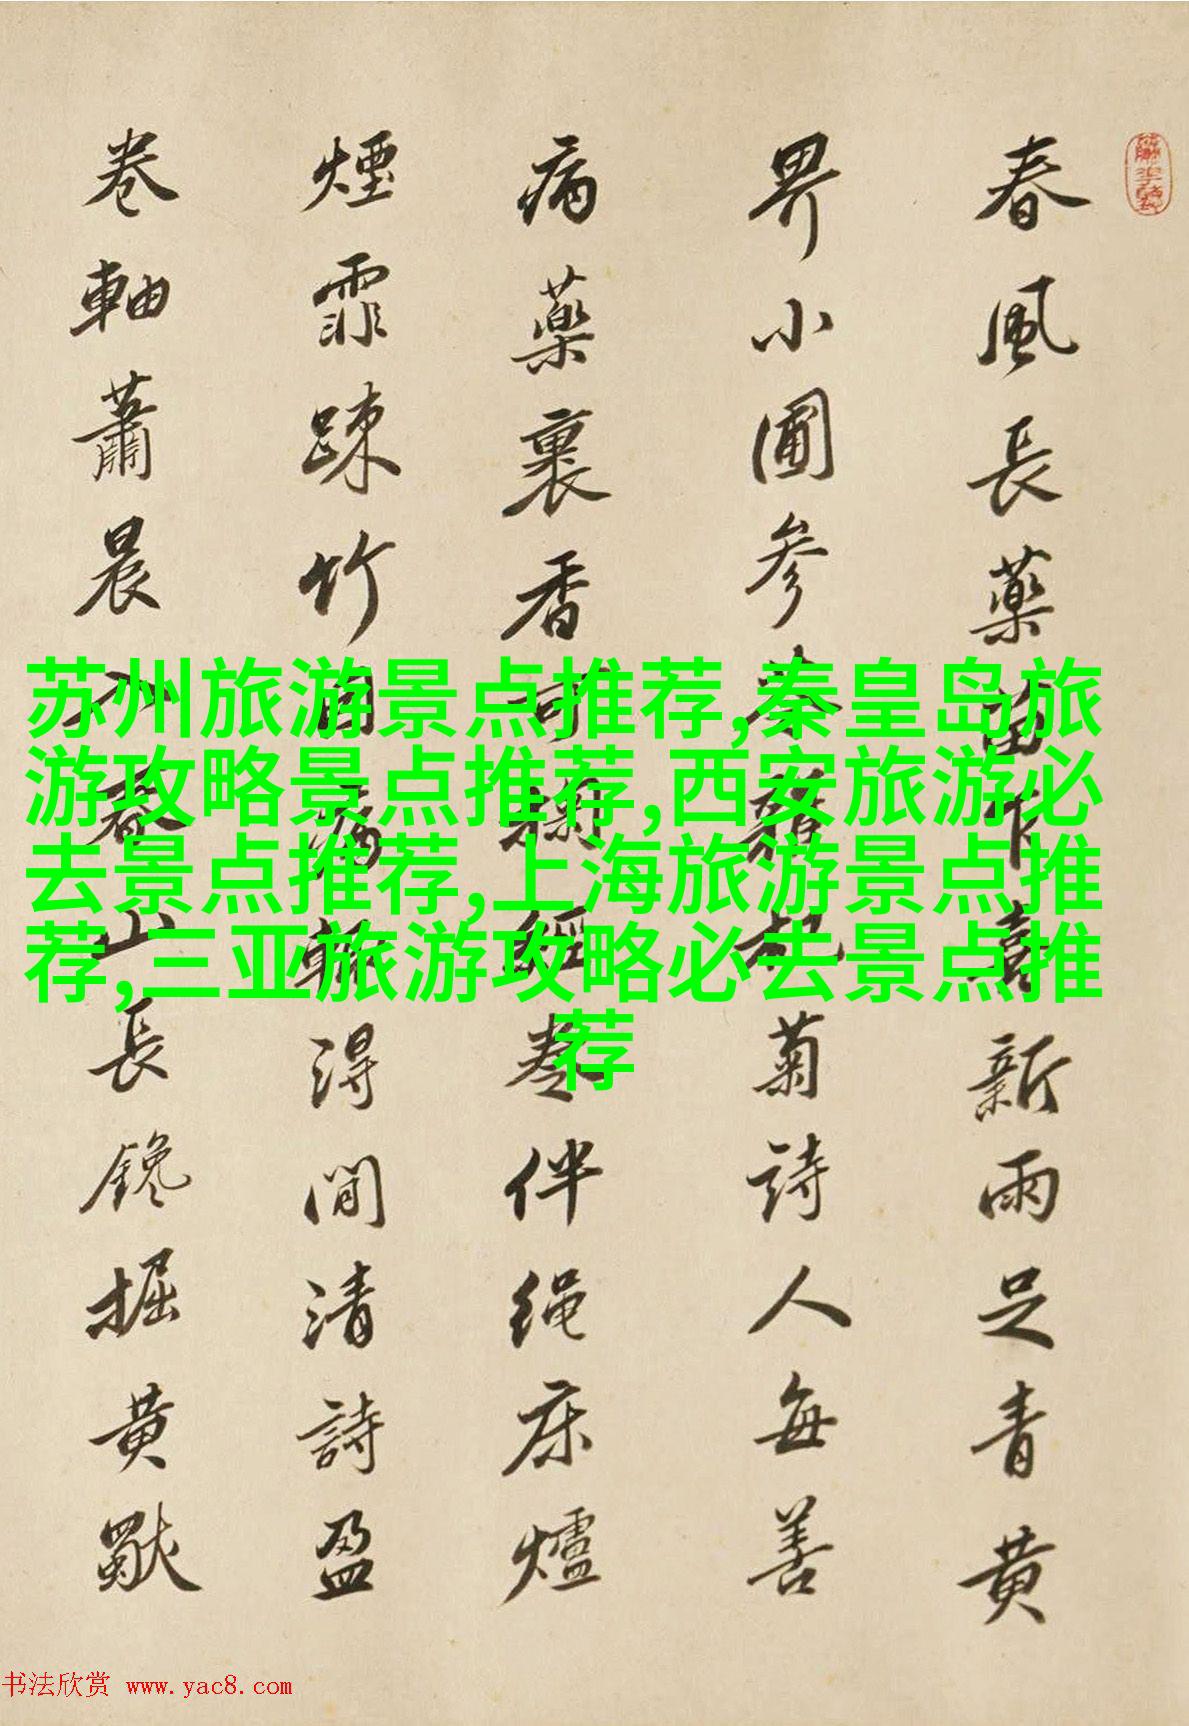 春風長藥苗乍喜新雨足青黃
界小圃参雜杞菊詩人每善
病藥裹香可經卷伴绳床爐
煙霏疎竹自病輒得閒清詩盈
卷軸蕭晨入春山長镵掘黄獨
苏州旅游景点推荐,秦皇岛旅
游攻略景点推荐,西安旅游必
去景点推荐,上海旅游景点推
荐,三亚旅游攻略必去景点推
荐
书法欣赏 www.yac8.com